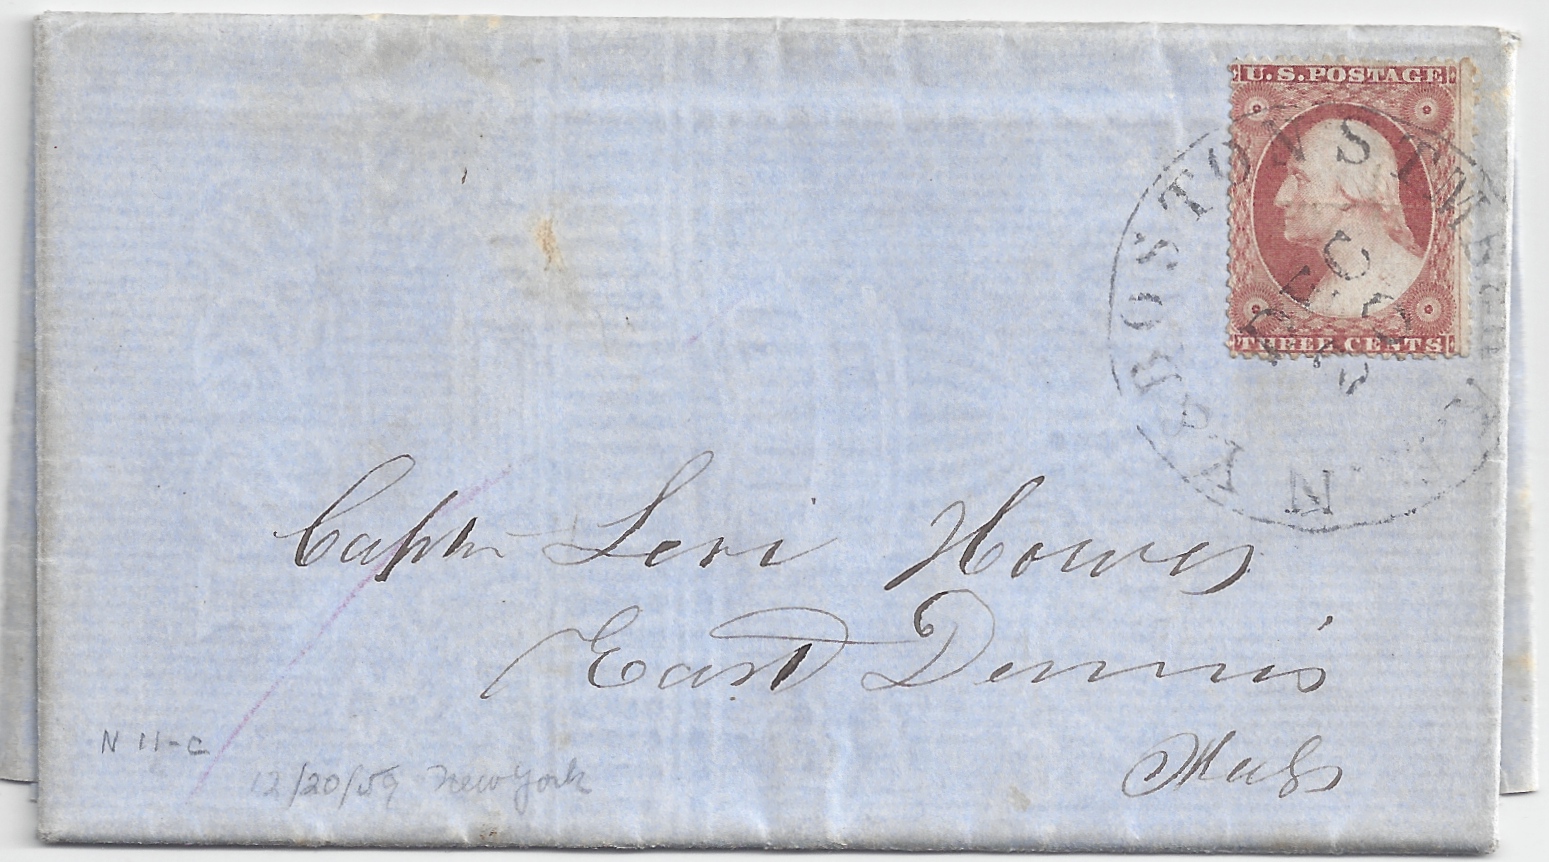 U.S.POSTAGE
THREE CENTS
N.Y. & BOSTON STMB
DEC 20
Captn Levi Howes
East Dennis
Mass
N 11-C
12/20/59 New York